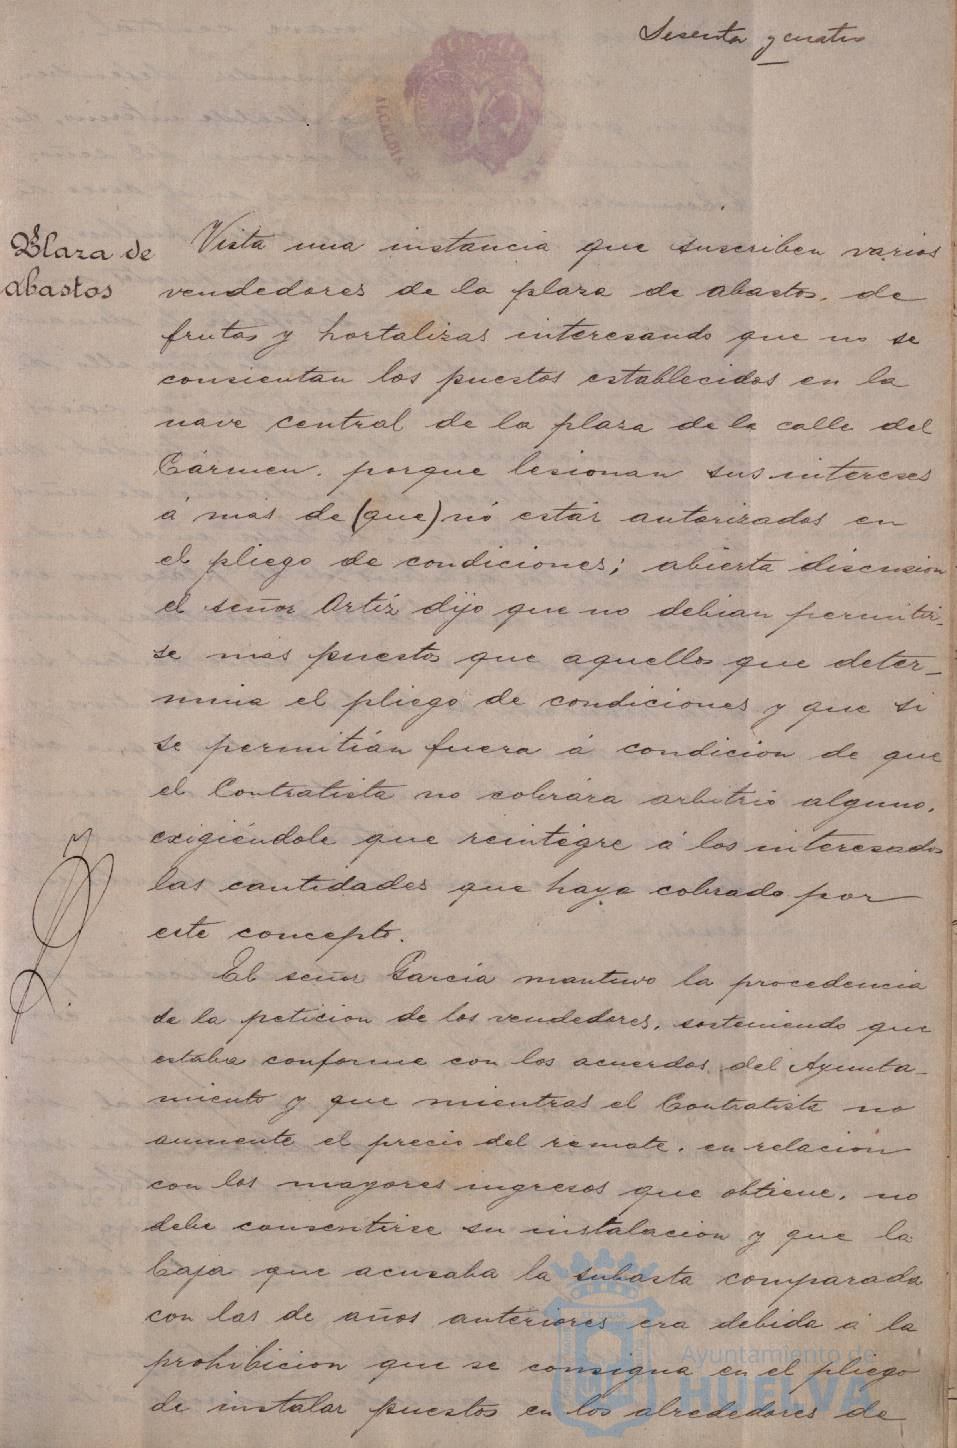 Sesenta y cuatro
ALCALDIA
Plaza de
abastos
Vista una instancia que suscriben varios
vendedores de la plaza de abastos, de
frutas y hortalizas interesando que no se
consientan los puestos establecidos en la
nave central de la plaza de la calle del
Cármen, porque lesionan sus intereses
á mas de (que) nó estár autorizados en
el pliego de condiciones; abierta discusion
el señor Ortiz dijo que no debian permitir-
se mas puestos que aquellos que deter-
mina el pliego de condiciones y que si
se permitián fuera á condicion de que
el Contratista no cobrára arbitrio alguno,
exigiéndole que reintegre á los interesados
las cantidades que haya cobrado por
este concepto.
El señor García mantuvo la procedencia
de la peticion de los vendedores, sosteniendo que
estaba conforme con los acuerdos del Ayunta-
miento y que mientras el Contratista no
aumente el precio del remate, en relacion
con los mayores ingresos que obtiene, no
debe consentirse su instalacion y que la
baja que acusaba la subasta comparada
con las de años anteriores era debida á la
prohibicion que se consigna en el pliego
de instalar puestos en los alrededores de
Ayuntamiento de
HUELVA